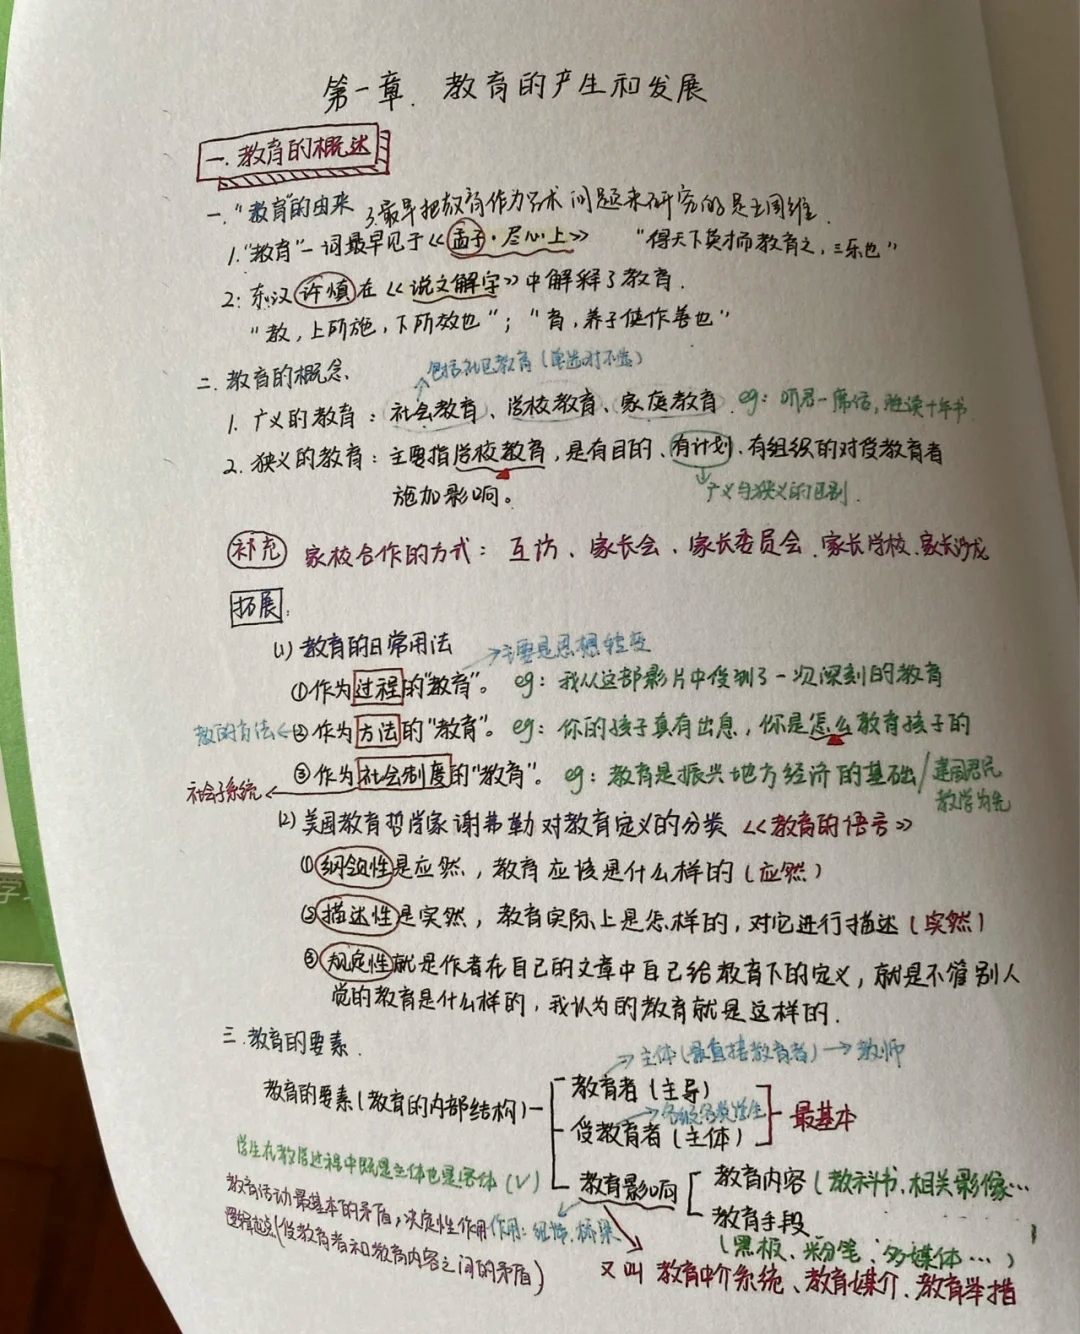 第一章. 教育的产生和发展
一. 教育的概述
一. "教育"的由来
3. 最早把教育作为学术问题来研究的是王国维.
1. "教育"一词最早见于《孟子·尽心上》 "得天下英才而教育之, 三乐也"
2: 东汉许慎在《说文解字》中解释了教育.
"教, 上所施, 下所效也"; "育, 养子使作善也"
包括社区教育(单选时不选)
二. 教育的概念
1. 广义的教育: 社会教育、学校教育、家庭教育. eg: 听君一席话, 胜读十年书
2. 狭义的教育: 主要指学校教育, 是有目的、有计划、有组织的对受教育者
施加影响。
广义与狭义的区别.
补充 家校合作的方式: 互访、家长会、家长委员会、家长学校、家长沙龙
拓展:
(1) 教育的日常用法
主要是思想转变
①作为过程的"教育"。 eg: 我从这部影片中受到了一次深刻的教育
教的方法←②作为方法的"教育"。 eg: 你的孩子真有出息, 你是怎么教育孩子的
③作为社会制度的"教育"。 eg: 教育是振兴地方经济的基础/建国君民
社会子系统
教学为先
(2) 美国教育哲学家谢弗勒对教育定义的分类《教育的语言》
①纲领性是应然, 教育应该是什么样的(应然)
②描述性是实然, 教育实际上是怎样的, 对它进行描述(实然)
③规定性就是作者在自己的文章中自己给教育下的定义, 就是不管别人
觉的教育是什么样的, 我认为的教育就是这样的.
三. 教育的要素.
主体(最直接教育者)→教师
教育者(主导)
教育的要素(教育的内部结构)
各级各类学生
最基本
受教育者(主体)
学生在教学过程中既是主体也是客体(√)
教育影响
教育内容(教科书、相关影像…
教育手段
(黑板、粉笔、多媒体…)
教育活动最基本的矛盾, 决定性作用
作用: 纽带、桥梁
逻辑起点(受教育者和教育内容之间的矛盾)
又叫 教育中介系统、教育媒介、教育举措